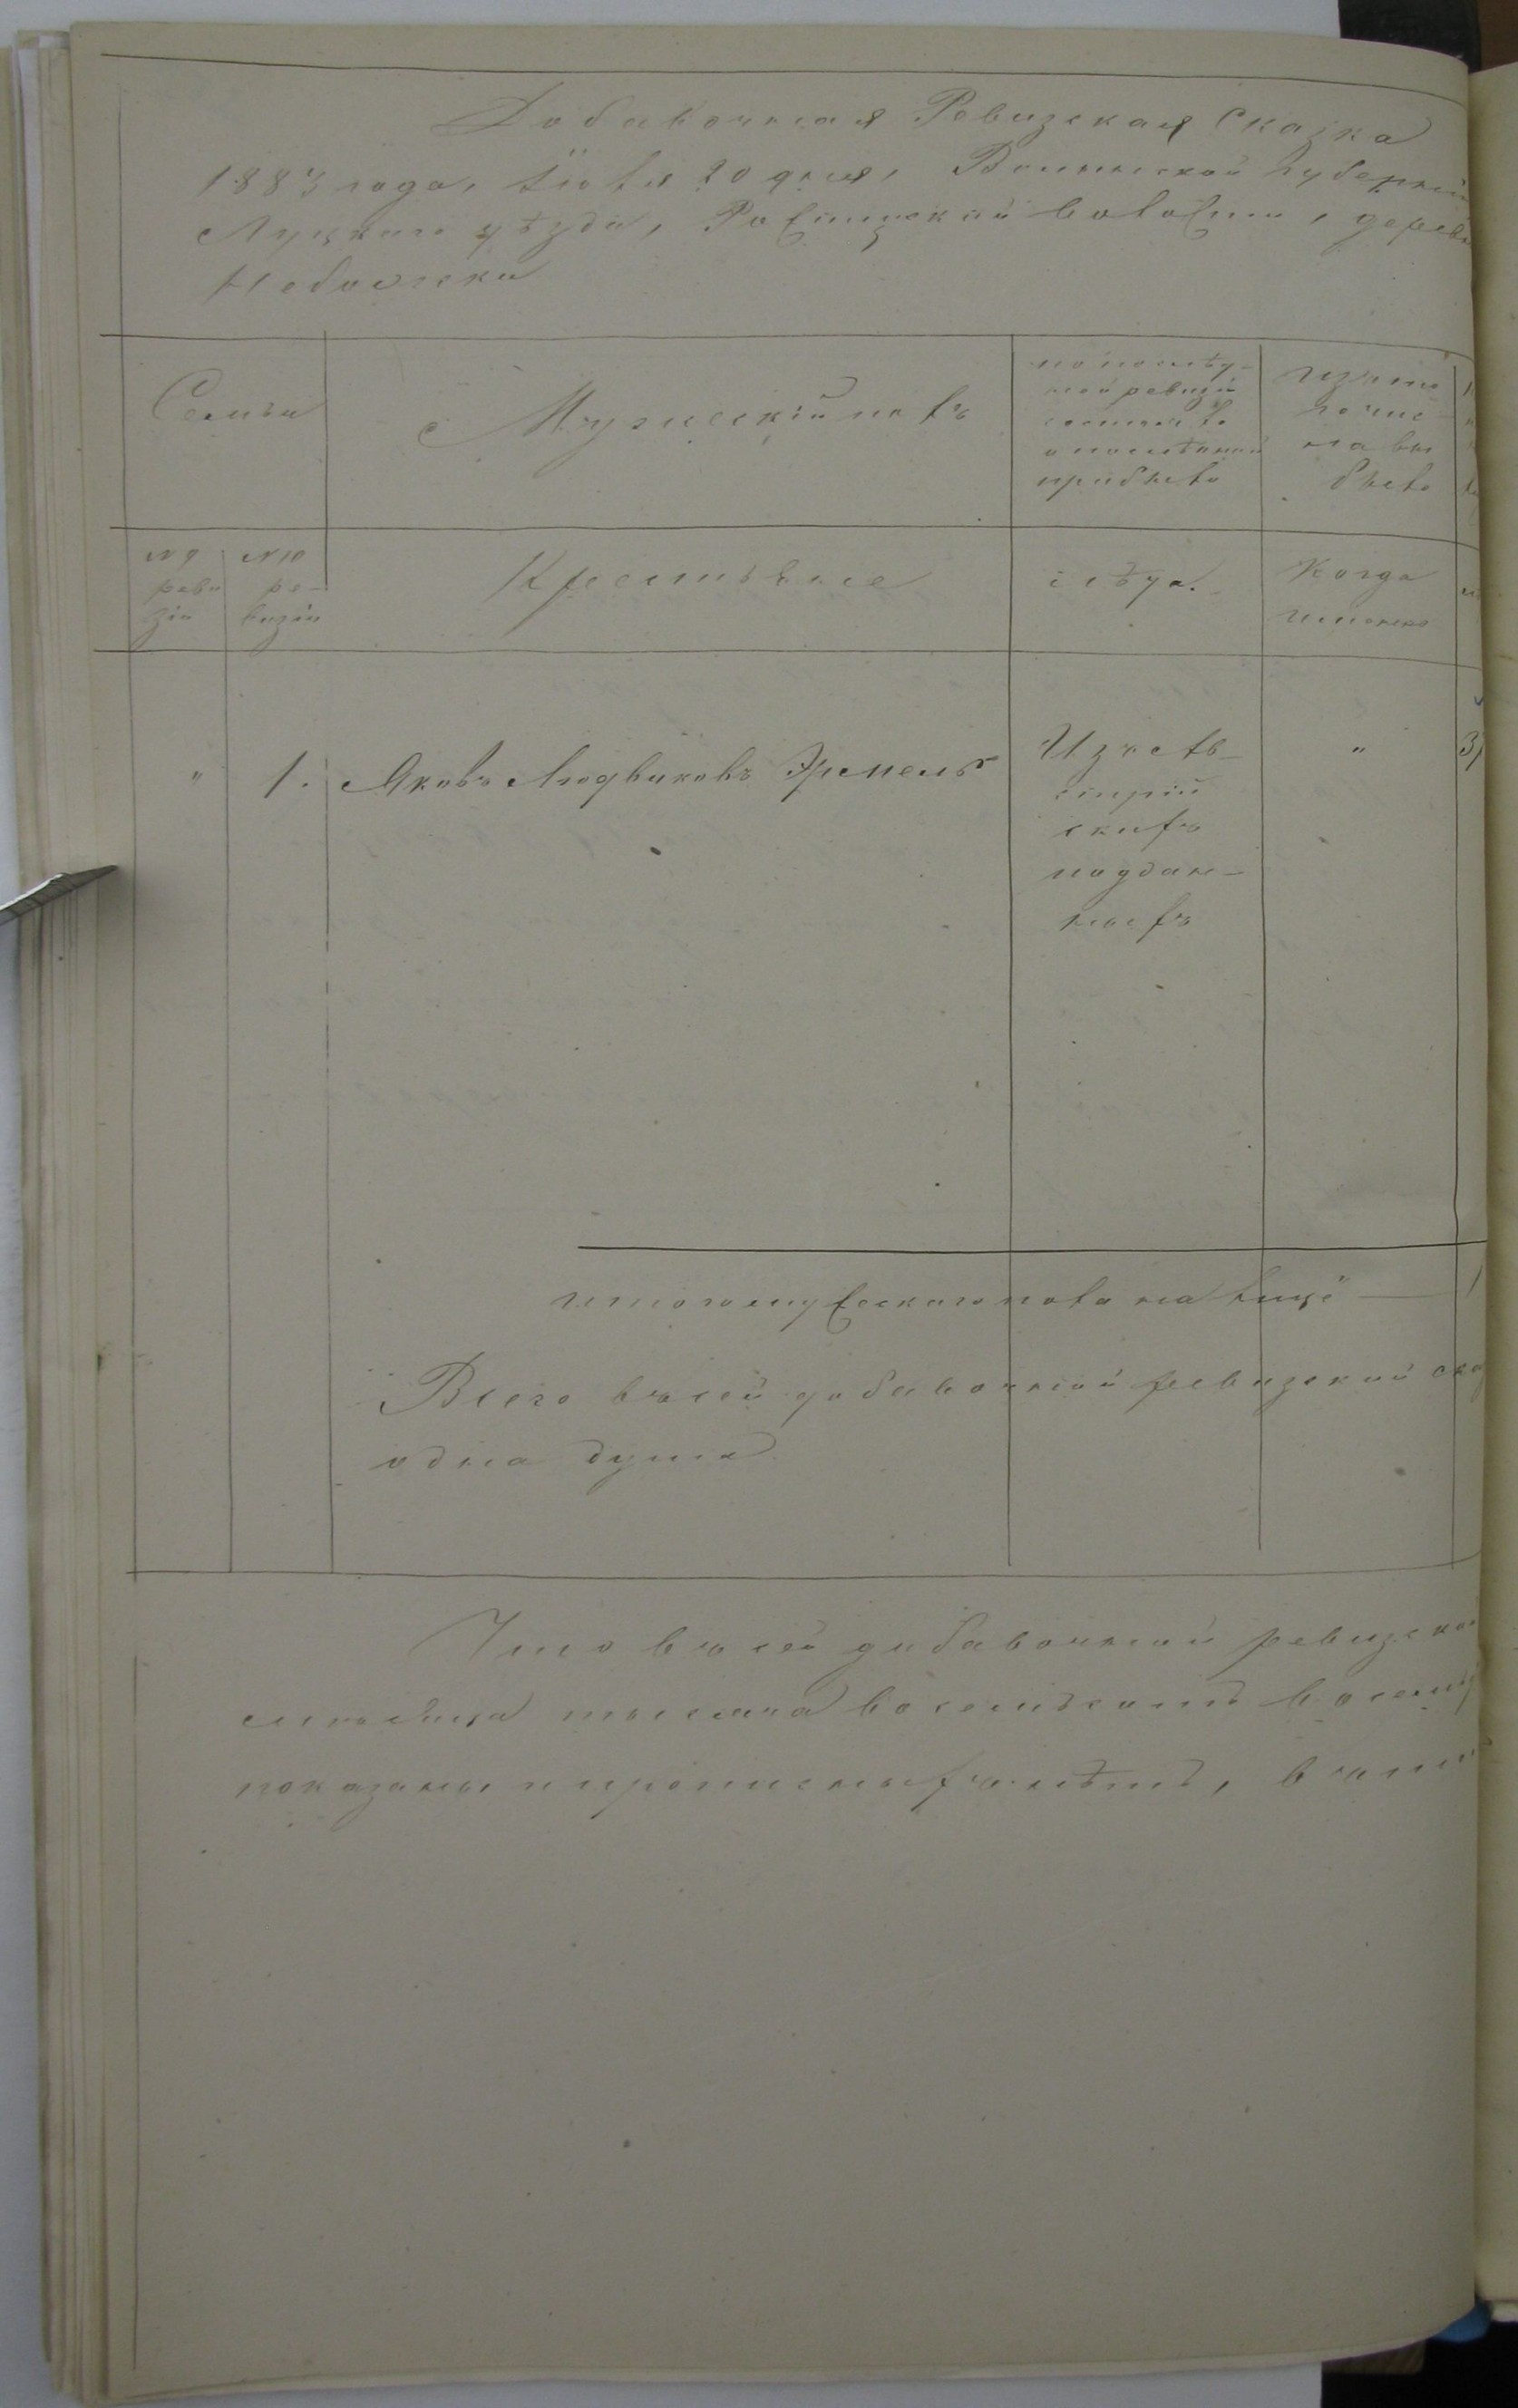 Добавочная Ревизская Сказка
1883 года, Іюля 20 дня, Волынской губерніи
Луцкаго уѣзда, Рожищской волости, дерев
Небожки
Семьи
Мужескій полъ
по послѣд-
ней ревизіи
состояло
и послѣ оной
прибыло
изъ того
числа вы
было
№ 9
реви
зіи
№ 10
ре-
визіи
Крестьяне
лѣта.
Когда
именно
" 1. Яковъ Людвиковъ Эрмель
Изъ Ав-
стрій
скихъ
поддан-
ныхъ
"
Итого мужескаго пола на лицо — 1
Всего въ сей добавочной ревизской ска
одна душа
Что въ сей добавочной ревизской
тысяча восемьсотъ восемьд
показаны и прописныхъ нѣтъ, въ